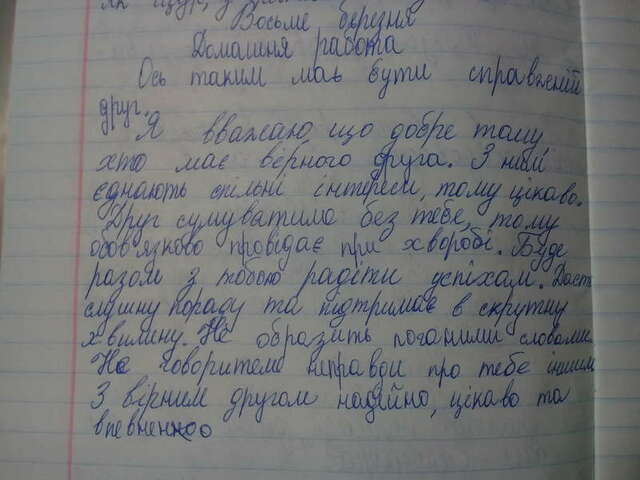 Восьме березня
Домашня работа
Ось таким має бути справжній
друг.
Я вважаю, що добре тому
хто має вірного друга. З ним
єднають спільні інтереси, тому цікаво.
Друг сумуватиме без тебе, тому
обов'язково провідає при хворобі. Буде
разом з тобою радіти успіхам. Дасть
слушну пораду та підтримає в скрутну
хвилину. Не образить поганими словами.
Не говоритеме неправди про тебе іншим
З вірним другом надійно, цікаво та
впевнено